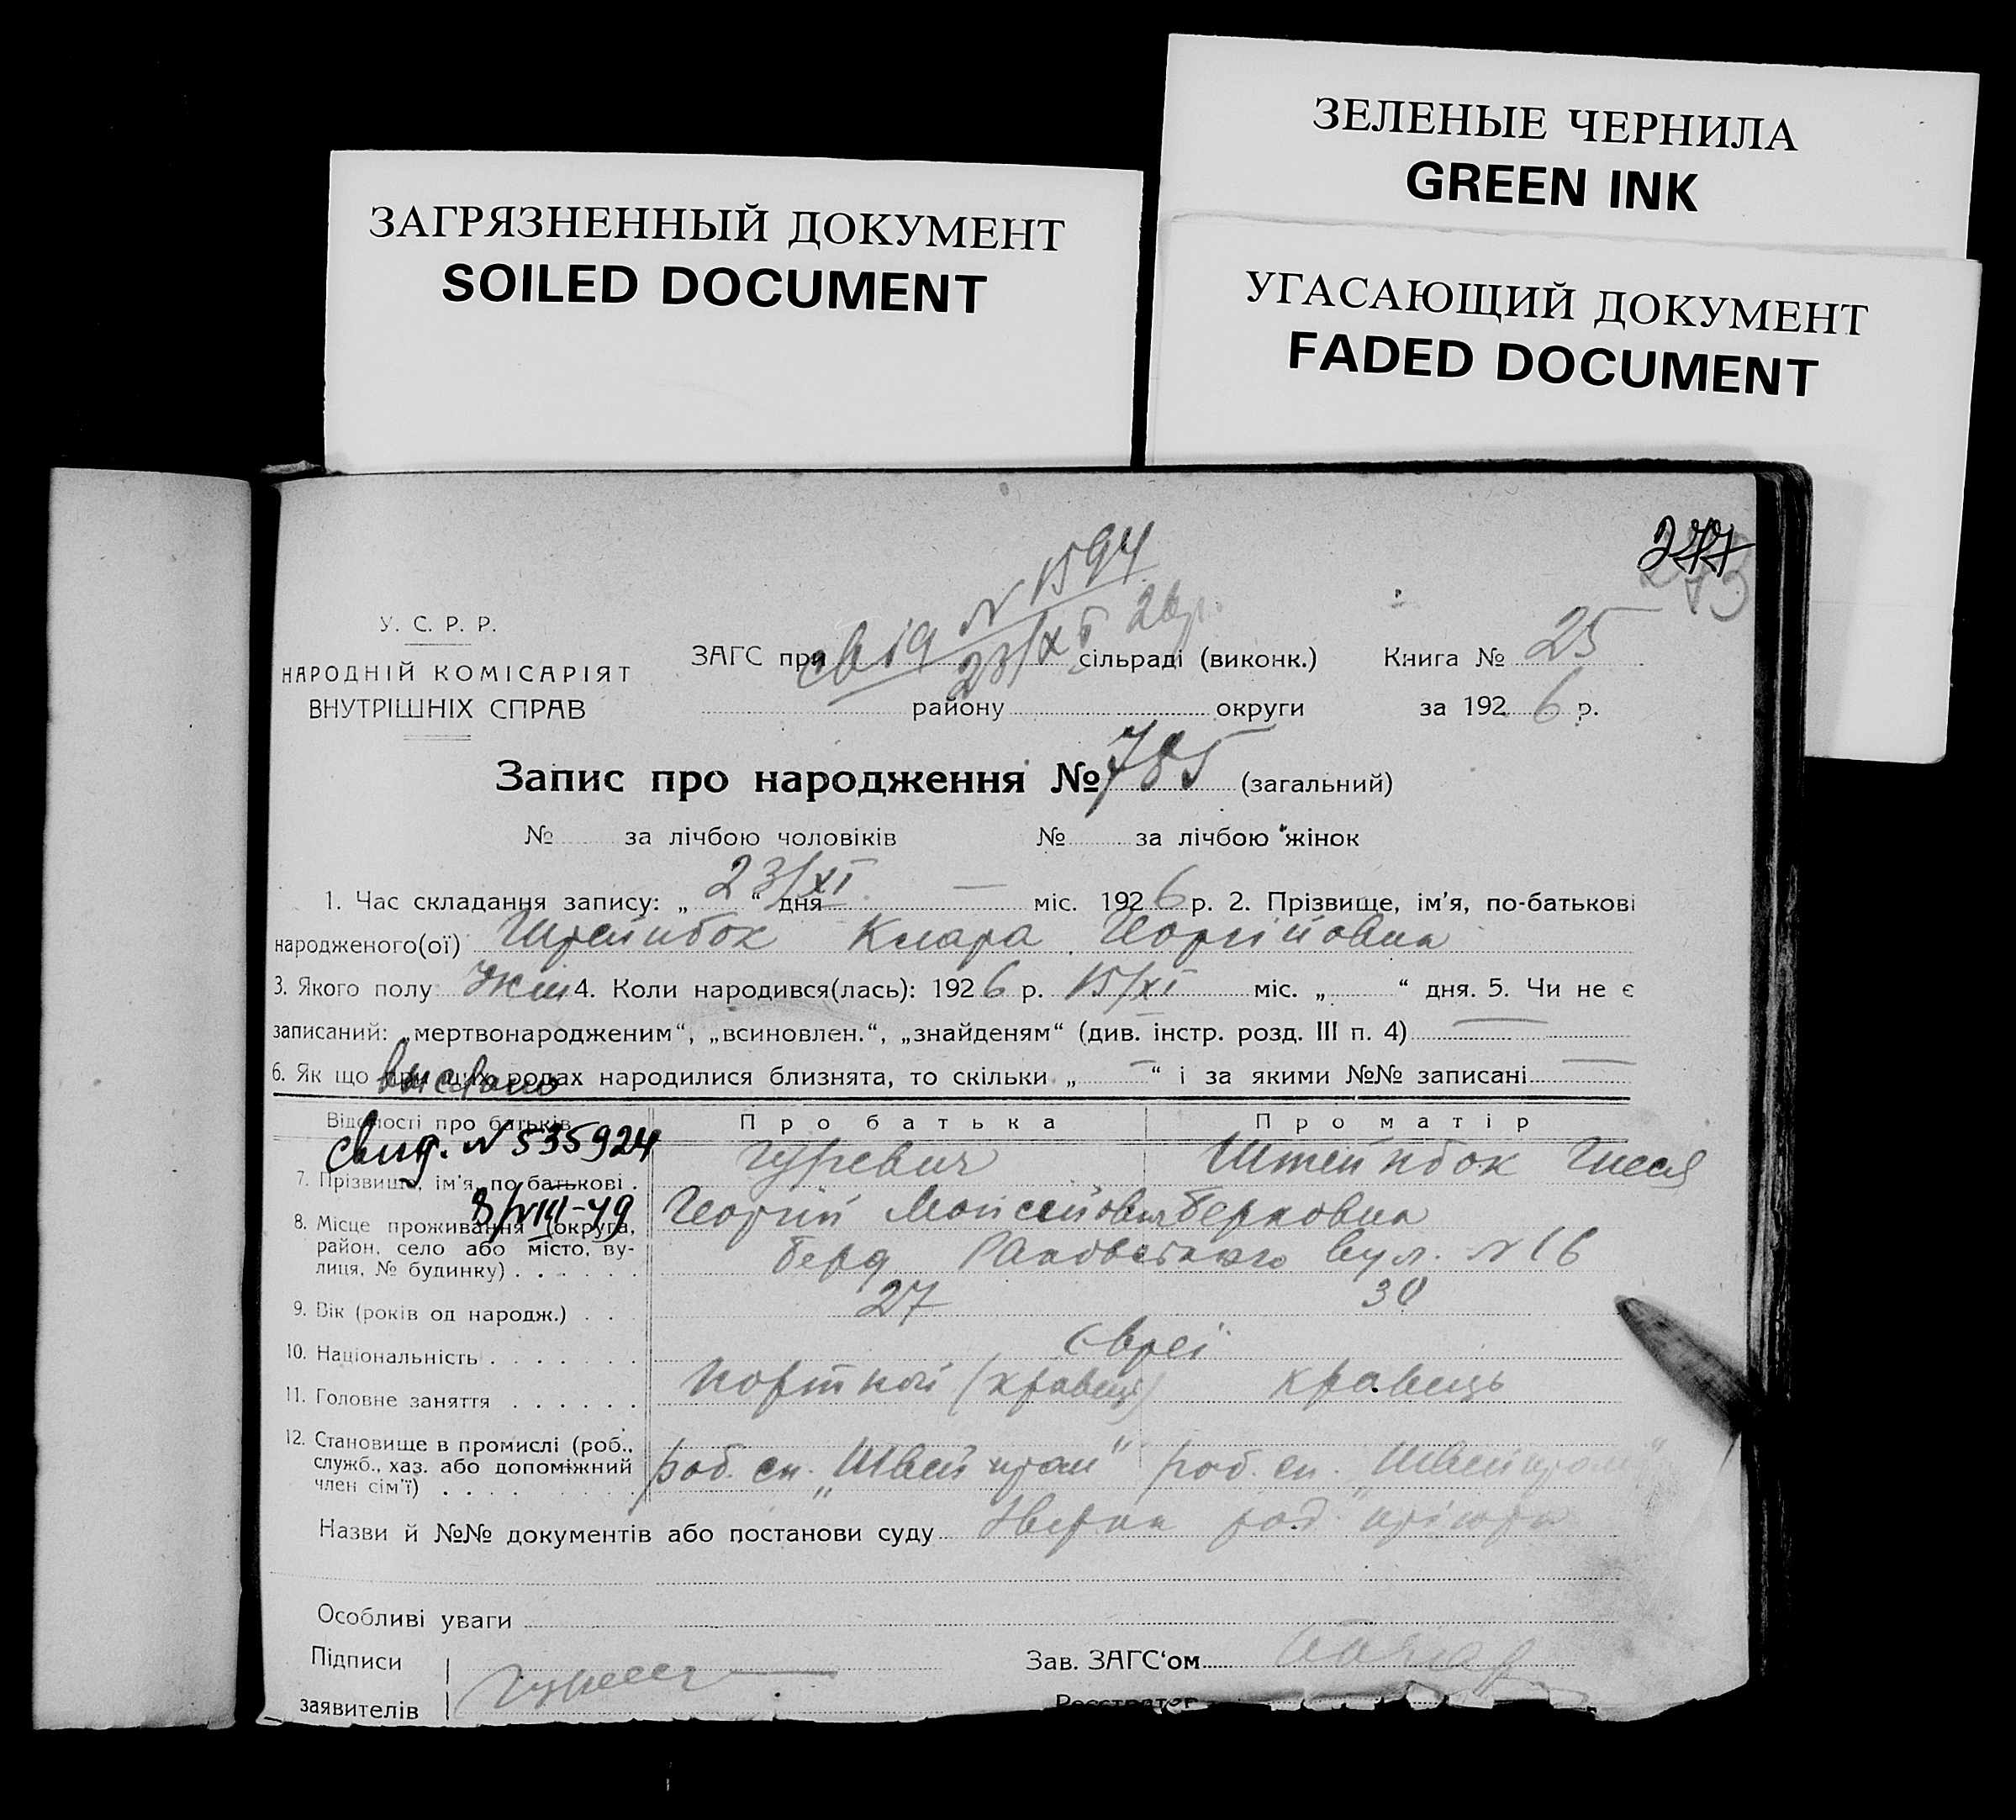 ЗЕЛЕНЫЕ ЧЕРНИЛА
GREEN INK
ЗАГРЯЗНЕННЫЙ ДОКУМЕНТ
SOILED DOCUMENT
УГАСАЮЩИЙ ДОКУМЕНТ
FADED DOCUMENT
свід N 1594
23/XI 26р.
У. С. Р. Р.
НАРОДНІЙ КОМІСАРІЯТ
ВНУТРІШНІХ СПРАВ
ЗАГС при сільраді (виконк.) Книга № 25
району округи за 1926 р.
Запис про народження № 785 (загальний)
№ за лічбою чоловіків № за лічбою жінок
1. Час складання запису: „ 23/XI “ дня — міс. 1926 р. 2. Прізвище, ім’я, по-батькові
народженого(ої) Штейнбок Клара Георгійовна
3. Якого полу жін 4. Коли народився(лась): 1926 р. 15/XI міс. „ “ дня. 5. Чи не є
записаний: „мертвонародженим“, „всиновлен.“, „знайденям“ (див. інстр. розд. III п. 4) —
6. Як що при цих родах народилися близнята, то скільки „ — “ і за якими №№ записані —
Відомості про батьків Про батька Про матір
свид. N 535924
8/VIII-49
7. Прізвище, ім’я, по-батькові . Гуревич Георгій Мойсейович Штейнбок Гися Берковна
8. Місце проживання (округа,
район, село або місто, ву-
лиця, № будинку) . . . . . . Берд Раковського вул. N 16
9. Вік (років од народж.) . . 27 30
10. Національність . . . . . . . Євреї
11. Головне заняття . . . . . . Портной (кравець) кравець
12. Становище в промислі (роб.,
служб., хаз. або допоміжний
член сім’ї) . . . . роб. сп. „Швейпром“ роб. сп. „Швейпром“
Назви й №№ документів або постанови суду
Особливі уваги
Підписи
заявителів Гуревич
Зав. ЗАГС‘ом
Реєстратор